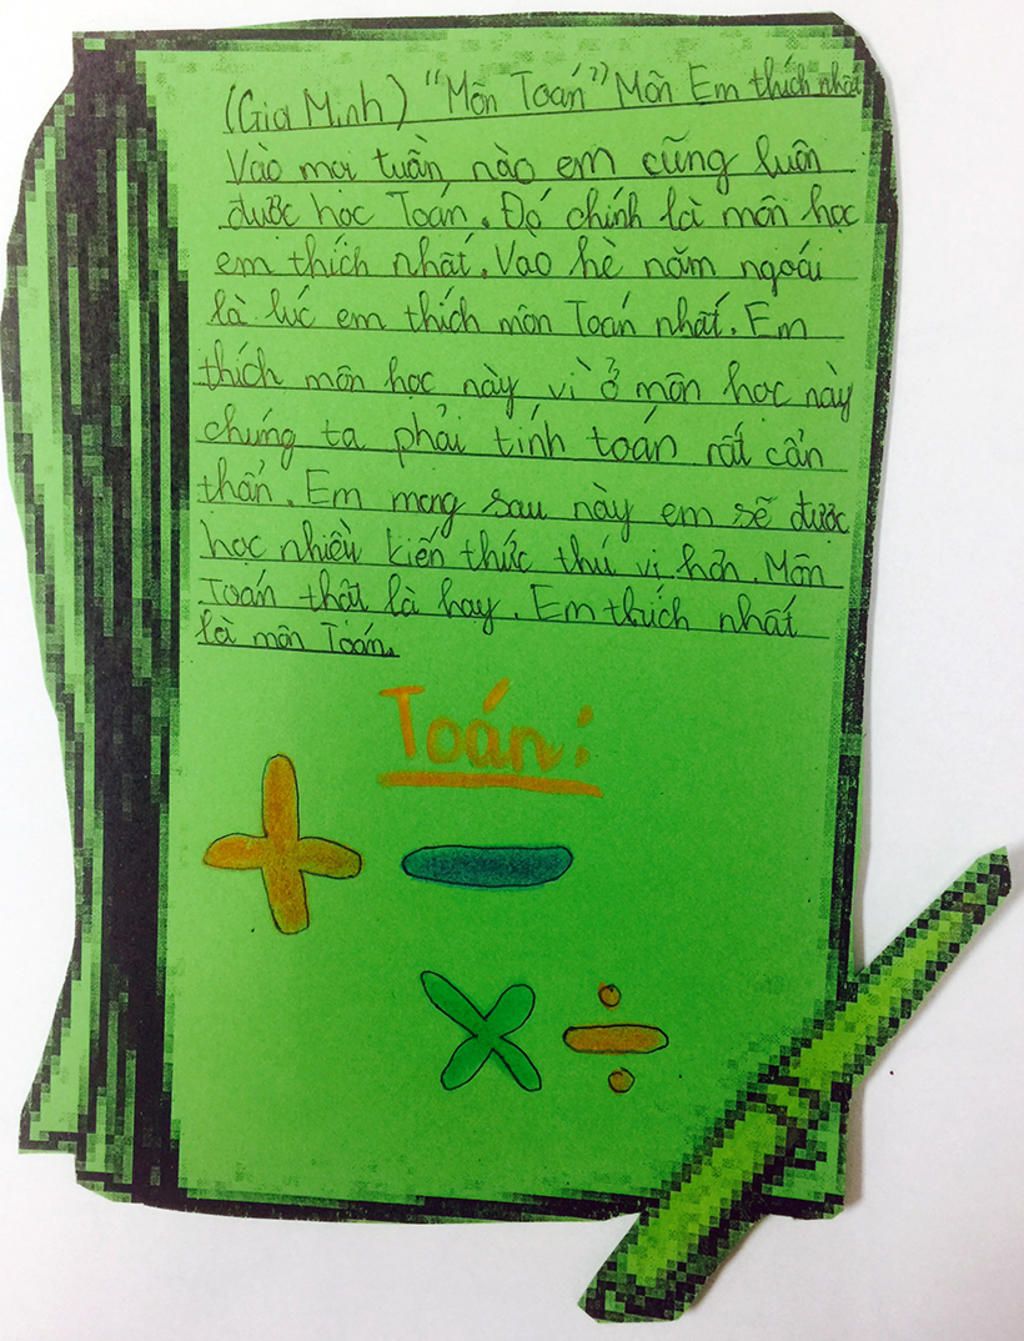 (Gia Minh) "Môn Toán" Môn Em thích nhất
Vào mọi tuần nào em cũng luôn
được học Toán. Đó chính là môn học
em thích nhất. Vào hè năm ngoái
là lúc em thích môn Toán nhất. Em
thích môn học này vì ở môn học này
chúng ta phải tính toán rất cẩn
thẩn. Em mong sau này em sẽ được
học nhiều kiến thức thú vị hơn. Môn
Toán thật là hay. Em thích nhất
là môn Toán.
Toán:
+ −
× ÷